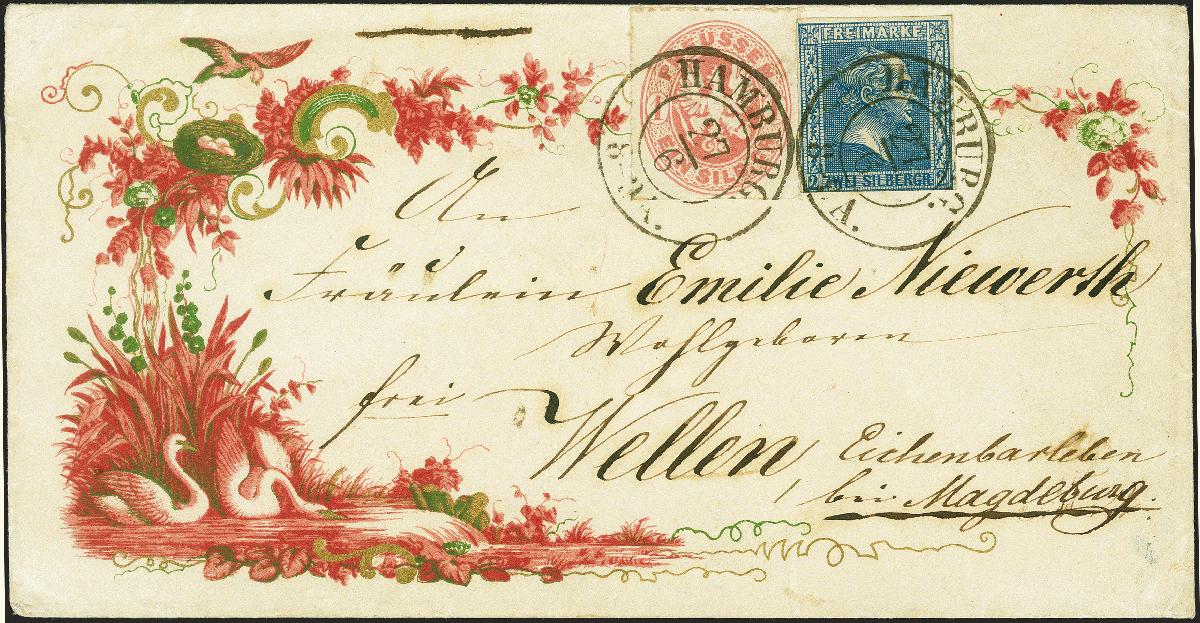 PREUSSEN
FREIMARKE
ZWEI SILBERGR.
HAMBURG
27
6
HAMBURG
27
An
Fräulein Emilie Niewerth
Wohlgeboren
frei Wellen, Eichenbarleben
bei Magdeburg.